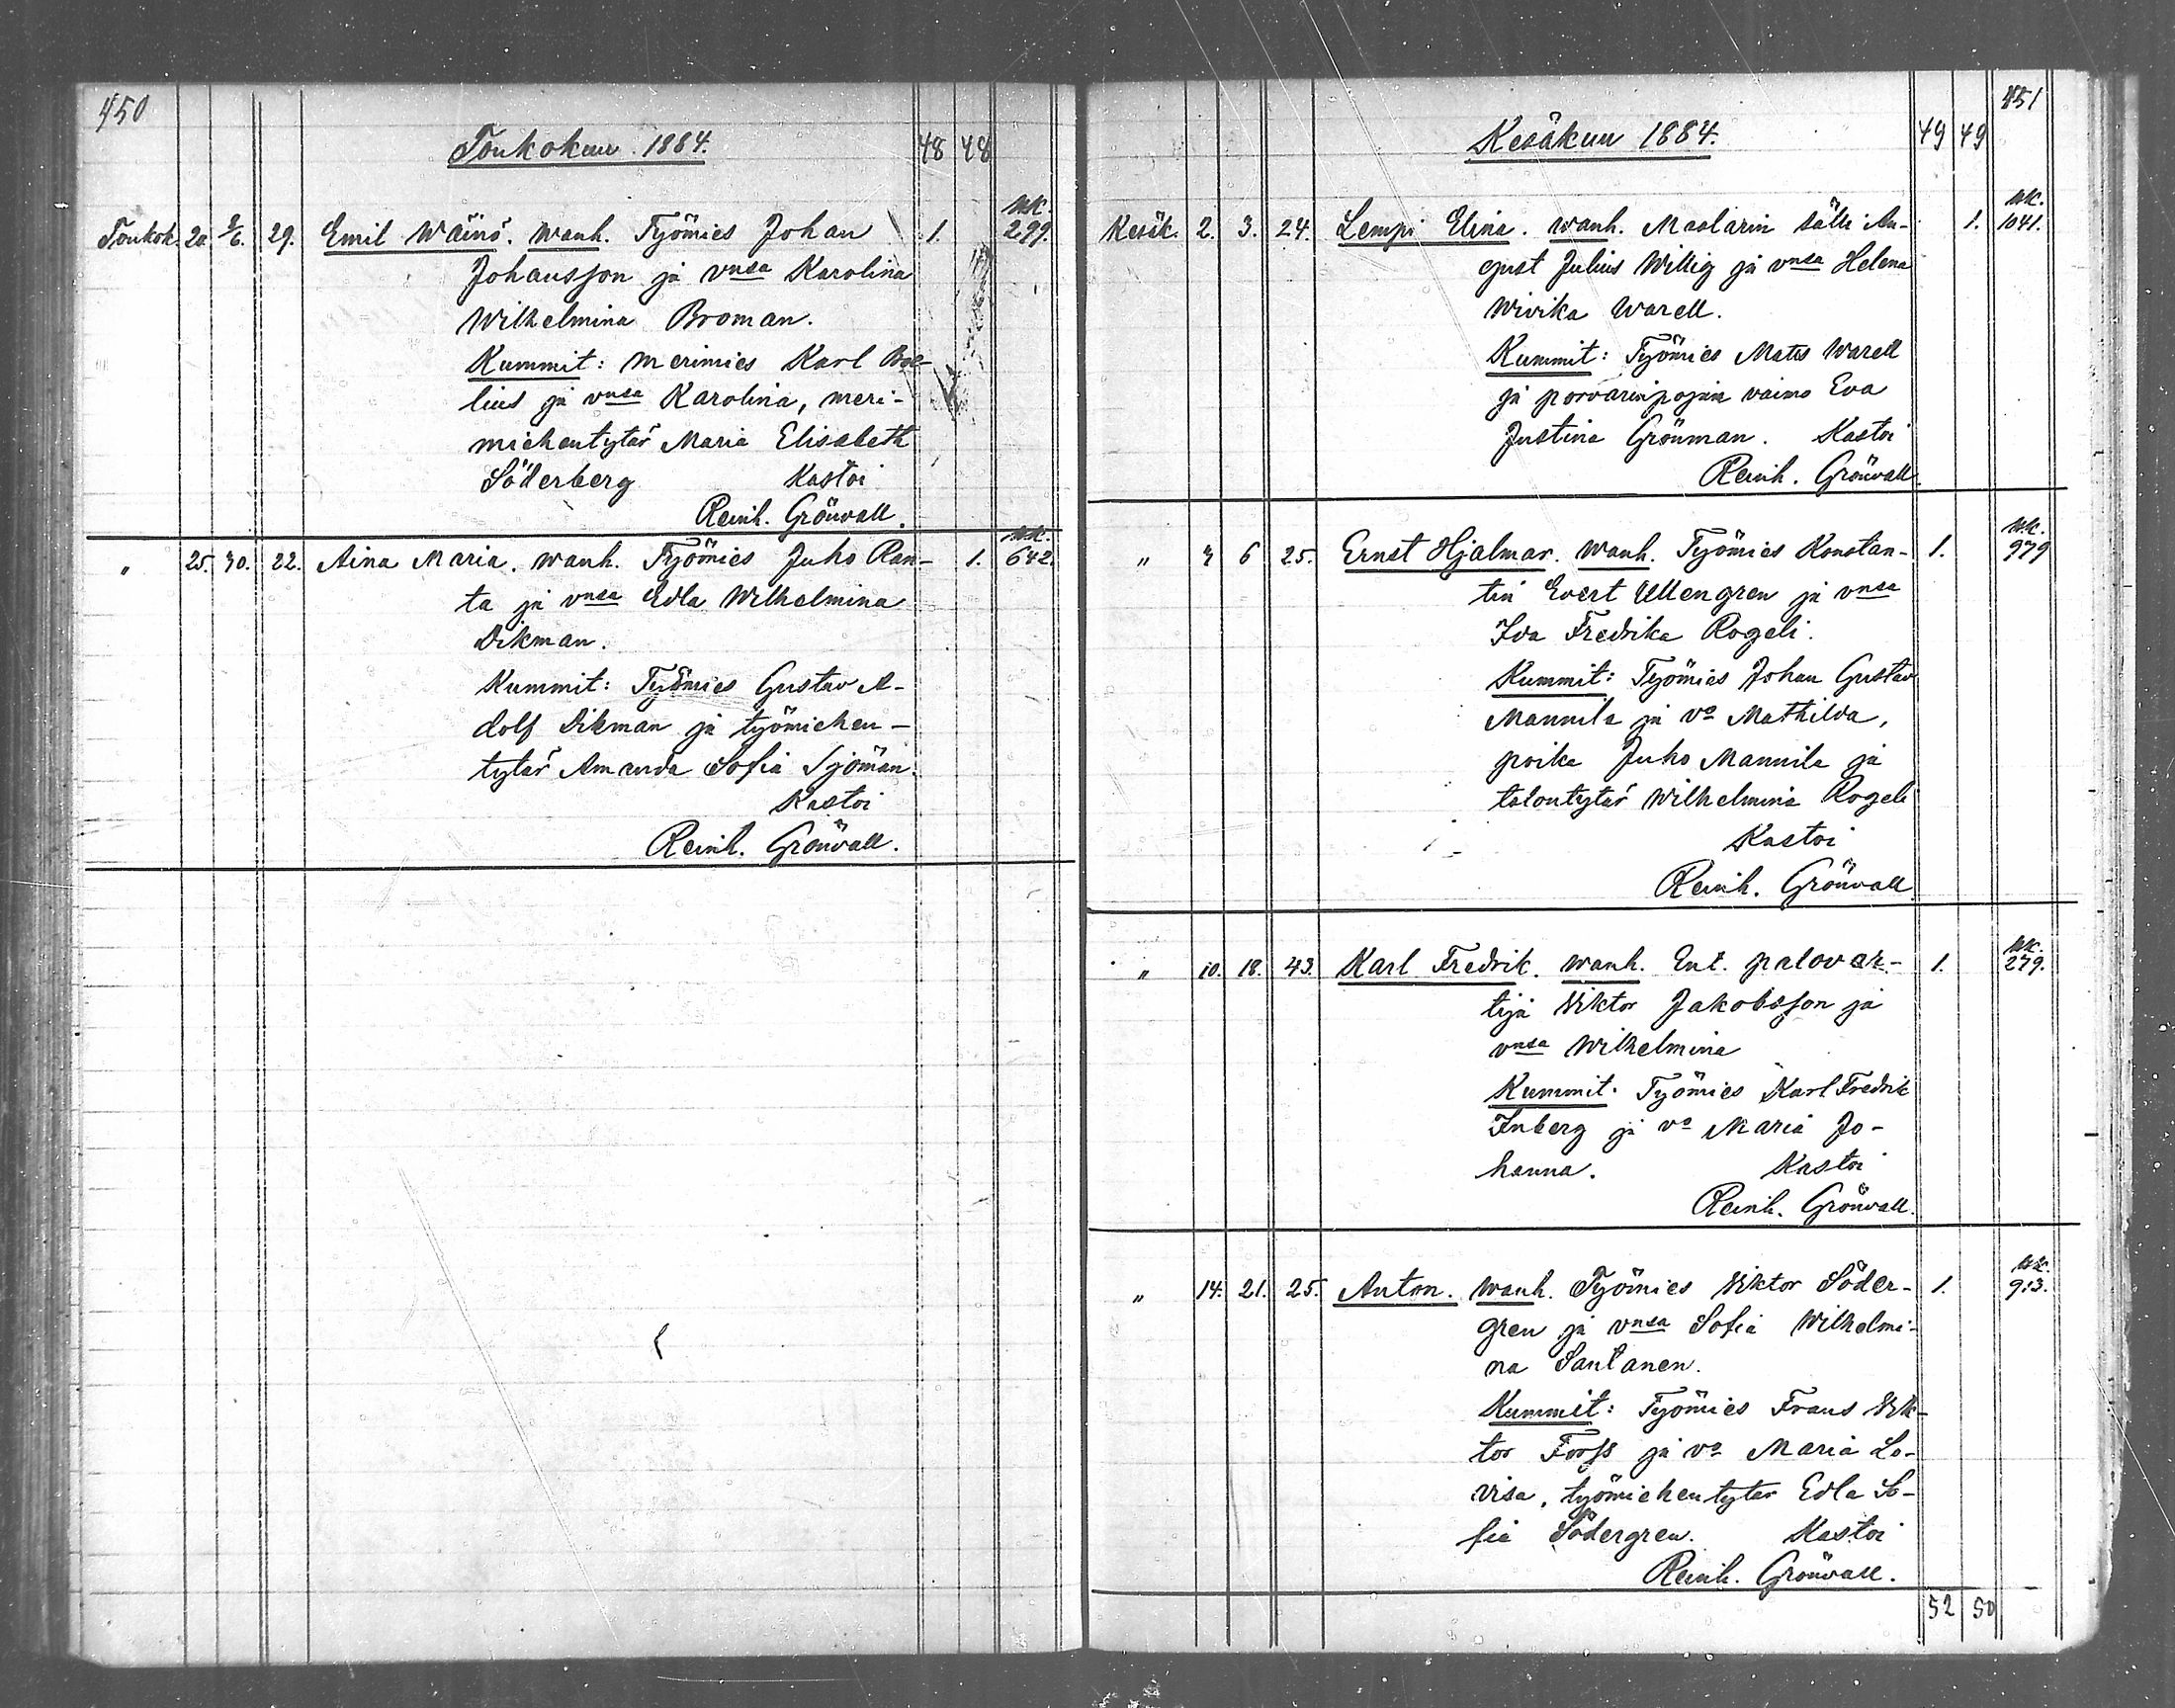 450
Toukokuu 1884. 48 48
Toukok. 20. 2/6. 29. Emil Wäinö. Wanh. Työmies Johan 1. Wk. 299.
Johansson ja vnsa Karolina
Wilhelmina Broman.
Kummit: Merimies Karl Boe-
lius ja vnsa Karolina, meri-
miehentytär Maria Elisabeth
Söderberg Kastoi
Reinh. Grönvall.
" 25. 30. 22. Aina Maria. Wanh. Työmies Juho Ran- 1. Wk. 642.
ta ja vnsa Edla Wilhelmina
Dikman.
Kummit: Työmies Gustav A-
dolf Dikman ja työmiehen-
tytär Amanda Sofia Sjöman.
Kastoi
Reinh. Grönvall.
451
Kesäkuu 1884. 49 49
Kesäk. 2. 3. 24. Lempi Elina. Wanh. Maalarin sälli Au- 1. Wk. 1041.
gust Julius Willig ja vnsa Helena
Wivika Warell.
Kummit: Työmies Mats Warell
ja porvarinpojan vaimo Eva
Justina Grönman. Kastoi
Reinh. Grönvall.
" 6 25. Ernst Hjalmar. Wanh. Työmies Konstan- 1. Wk. 979
tin Evert Ullengren ja vnsa
Ida Fredrika Rogeli.
Kummit: Työmies Johan Gustav
Mannila ja vo Mathilda,
poika Juho Mannila ja
talontytär Wilhelmina Rogeli
Kastoi
Reinh. Grönvall
" 10. 18. 43. Karl Fredrik. Wanh. Ent. palovar- 1. Wk. 279.
tija Viktor Jakobsson ja
vnsa Wilhelmina
Kummit. Työmies Karl Fredrik
Inberg ja vo Maria Jo-
hanna. Kastoi
Reinh. Grönvall.
" 14. 21. 25. Anton. Wanh. Työmies Viktor Söder- 1. Wk. 913.
gren ja vnsa Sofia Wilhelmi-
na Santanen.
Kummit: Työmies Frans Vik-
tor Forss ja vo Maria Lo-
visa, työmiehentytar Edla So-
fia Södergren. Kastoi
Reinh. Grönvall.
52 50